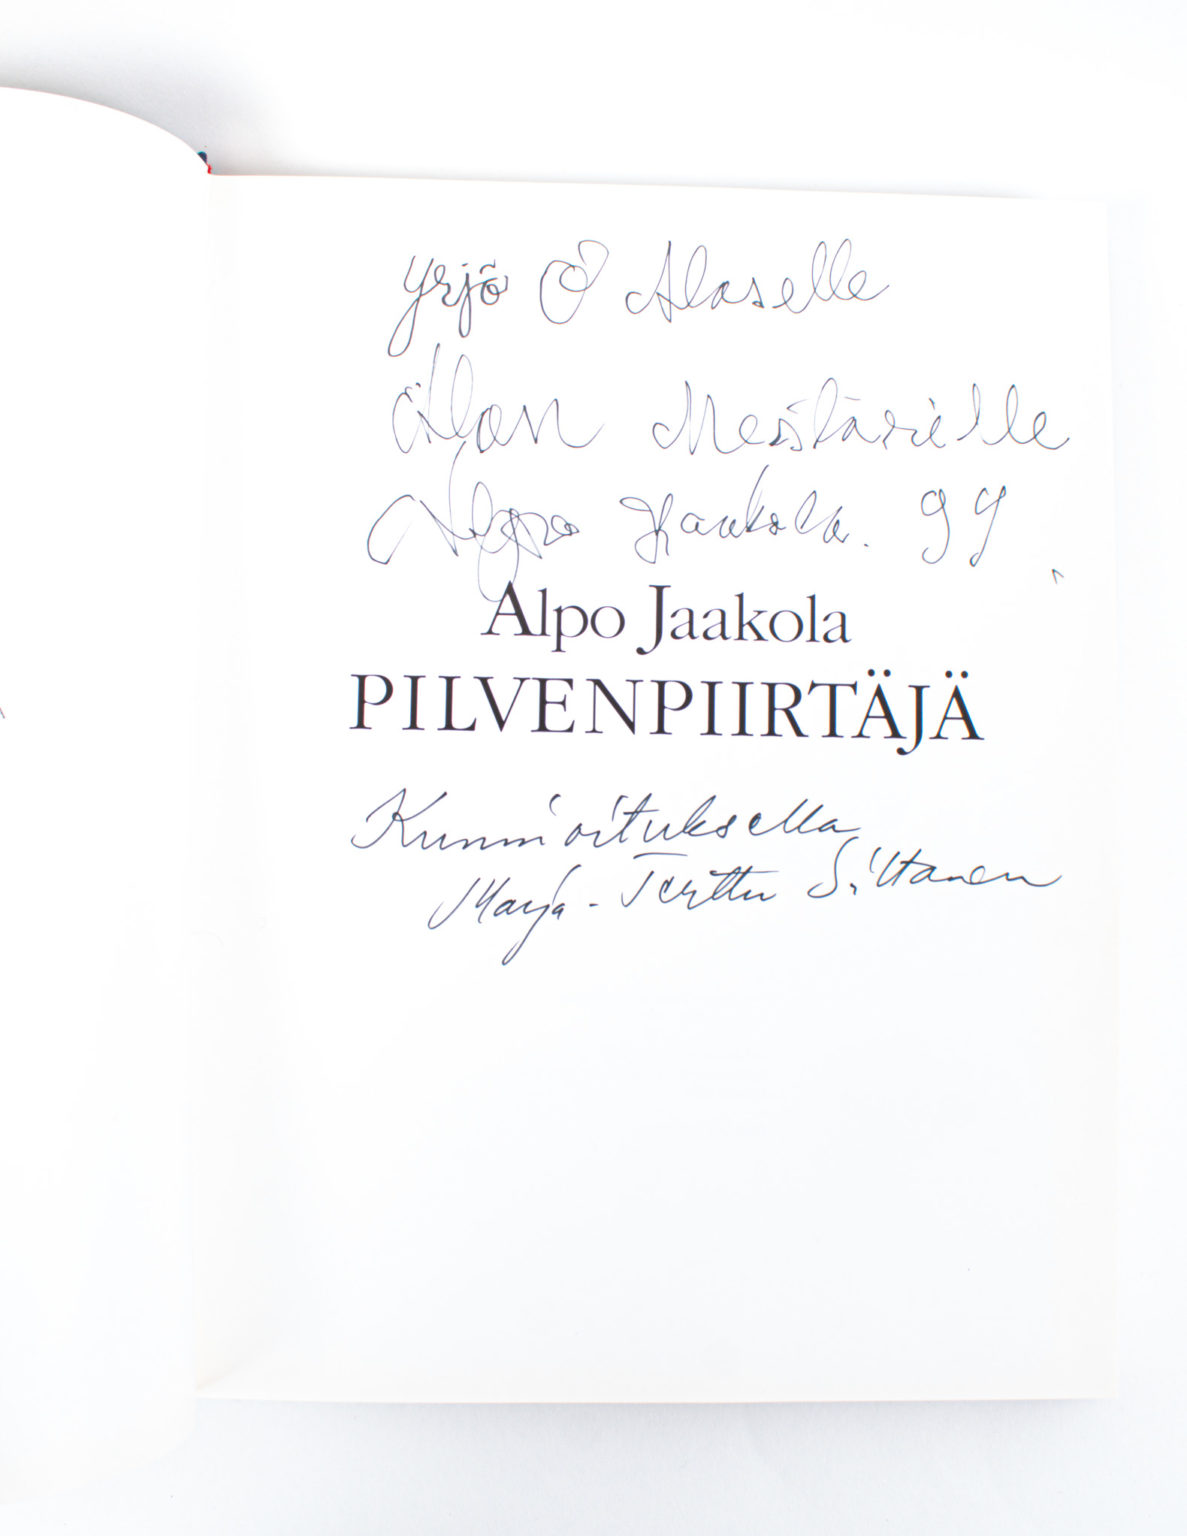 Yrjö O Alaselle
Alan Mestarille
Alpo Jaakola. 94
Alpo Jaakola
PILVENPIIRTÄJÄ
Kunnioituksella
Marja-Terttu Siltanen